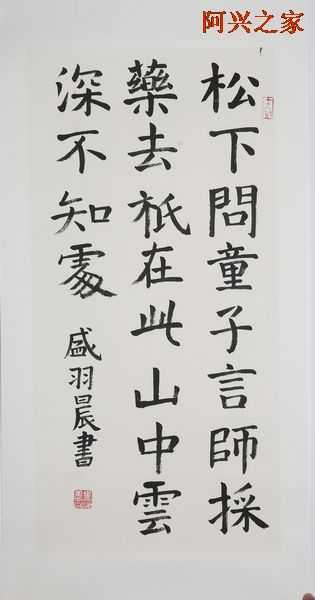 阿兴之家
松下問童子言師採
藥去祇在此山中雲
深不知處
盛羽晨書